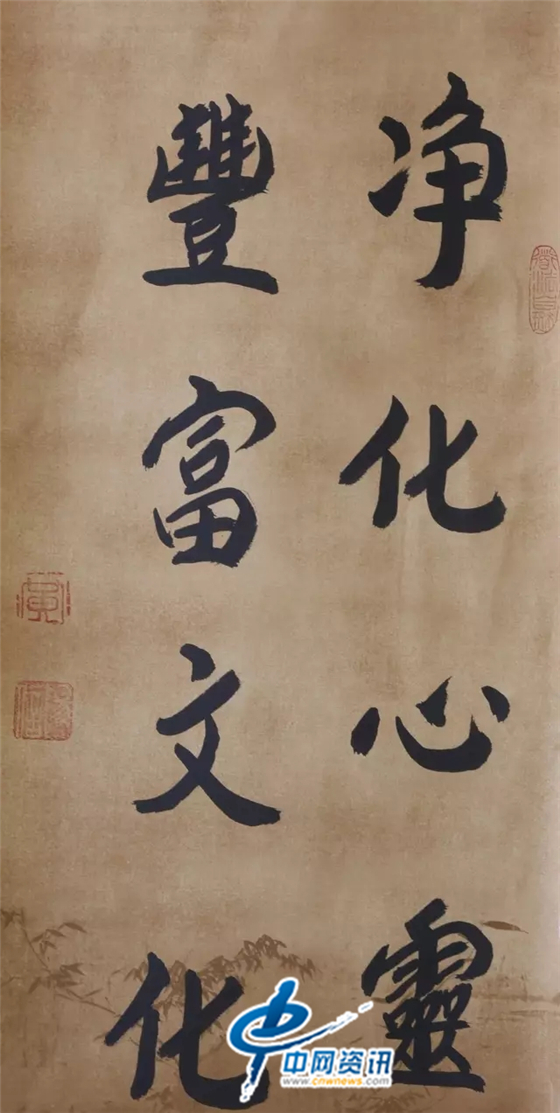 净化心靈
豐富文化
中网资讯
www.cnwnews.com